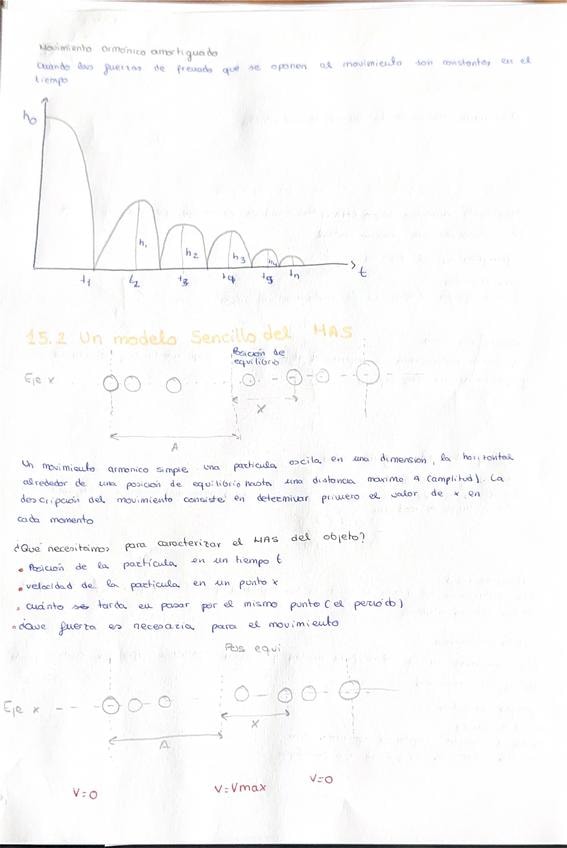 Movimiento armónico amortiguado
Cuando las fuerzas de frenado que se oponen al movimiento son constantes en el
tiempo
h0
h1
h2
h3
h4
t1 t2 t3 t4 t5 tn
t
15.2 Un modelo Sencillo del MAS
Posición de
equilibrio
Eje x
x
A
Un movimiento armonico simple una particula oscila en una dimensión, la horizontal
alrededor de una posición de equilibrio hasta una distancia maxima A (amplitud). La
descripción del movimiento consiste en determinar primero el valor de x en
cada momento
¿Qué necesitamos para caracterizar el MAS del objeto?
• Posición de la partícula en un tiempo t
• velocidad de la particula en un punto x
• cuánto tarda en pasar por el mismo punto (el período)
• Que fuerza es necesaria para el movimiento
Pos equi
Eje x
x
A
V=0 V=Vmax V=0